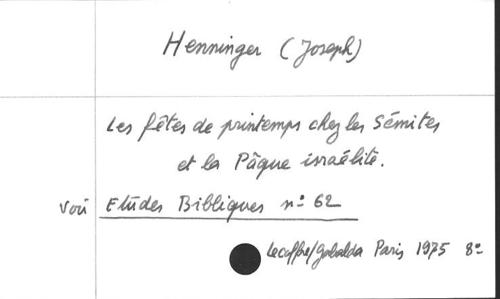 Henninger (Joseph)
Les fêtes de printemps chez les Sémites
et la Pâque israélite.
voir Etudes Bibliques n° 62
Lecoffre/Gabalda Paris 1975 8°